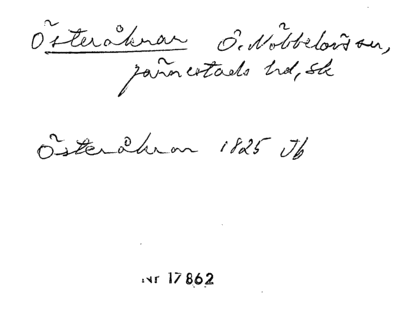 Österåkran Ö. Nöbbelövs sn,
Järrestads hd, Sk
Österåkran 1825 Jb
Nr 17862